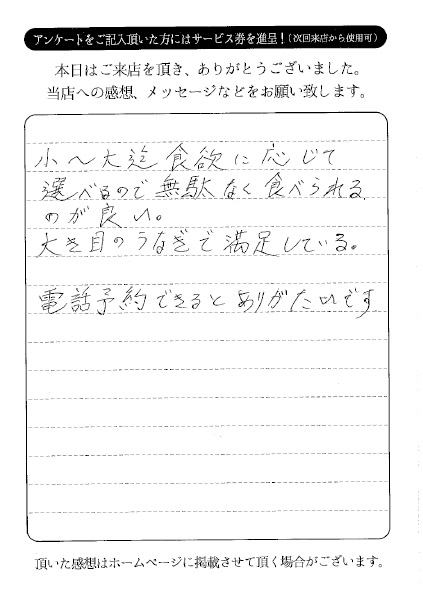 アンケートをご記入頂いた方にはサービス券を進呈！（次回来店から使用可）
本日はご来店を頂き、ありがとうございました。
当店への感想、メッセージなどをお願い致します。
小〜大迄食欲に応じて
選べるので無駄なく食べられる
のが良い。
大き目のうなぎで満足している。
電話予約できるとありがたいです
頂いた感想はホームページに掲載させて頂く場合がございます。